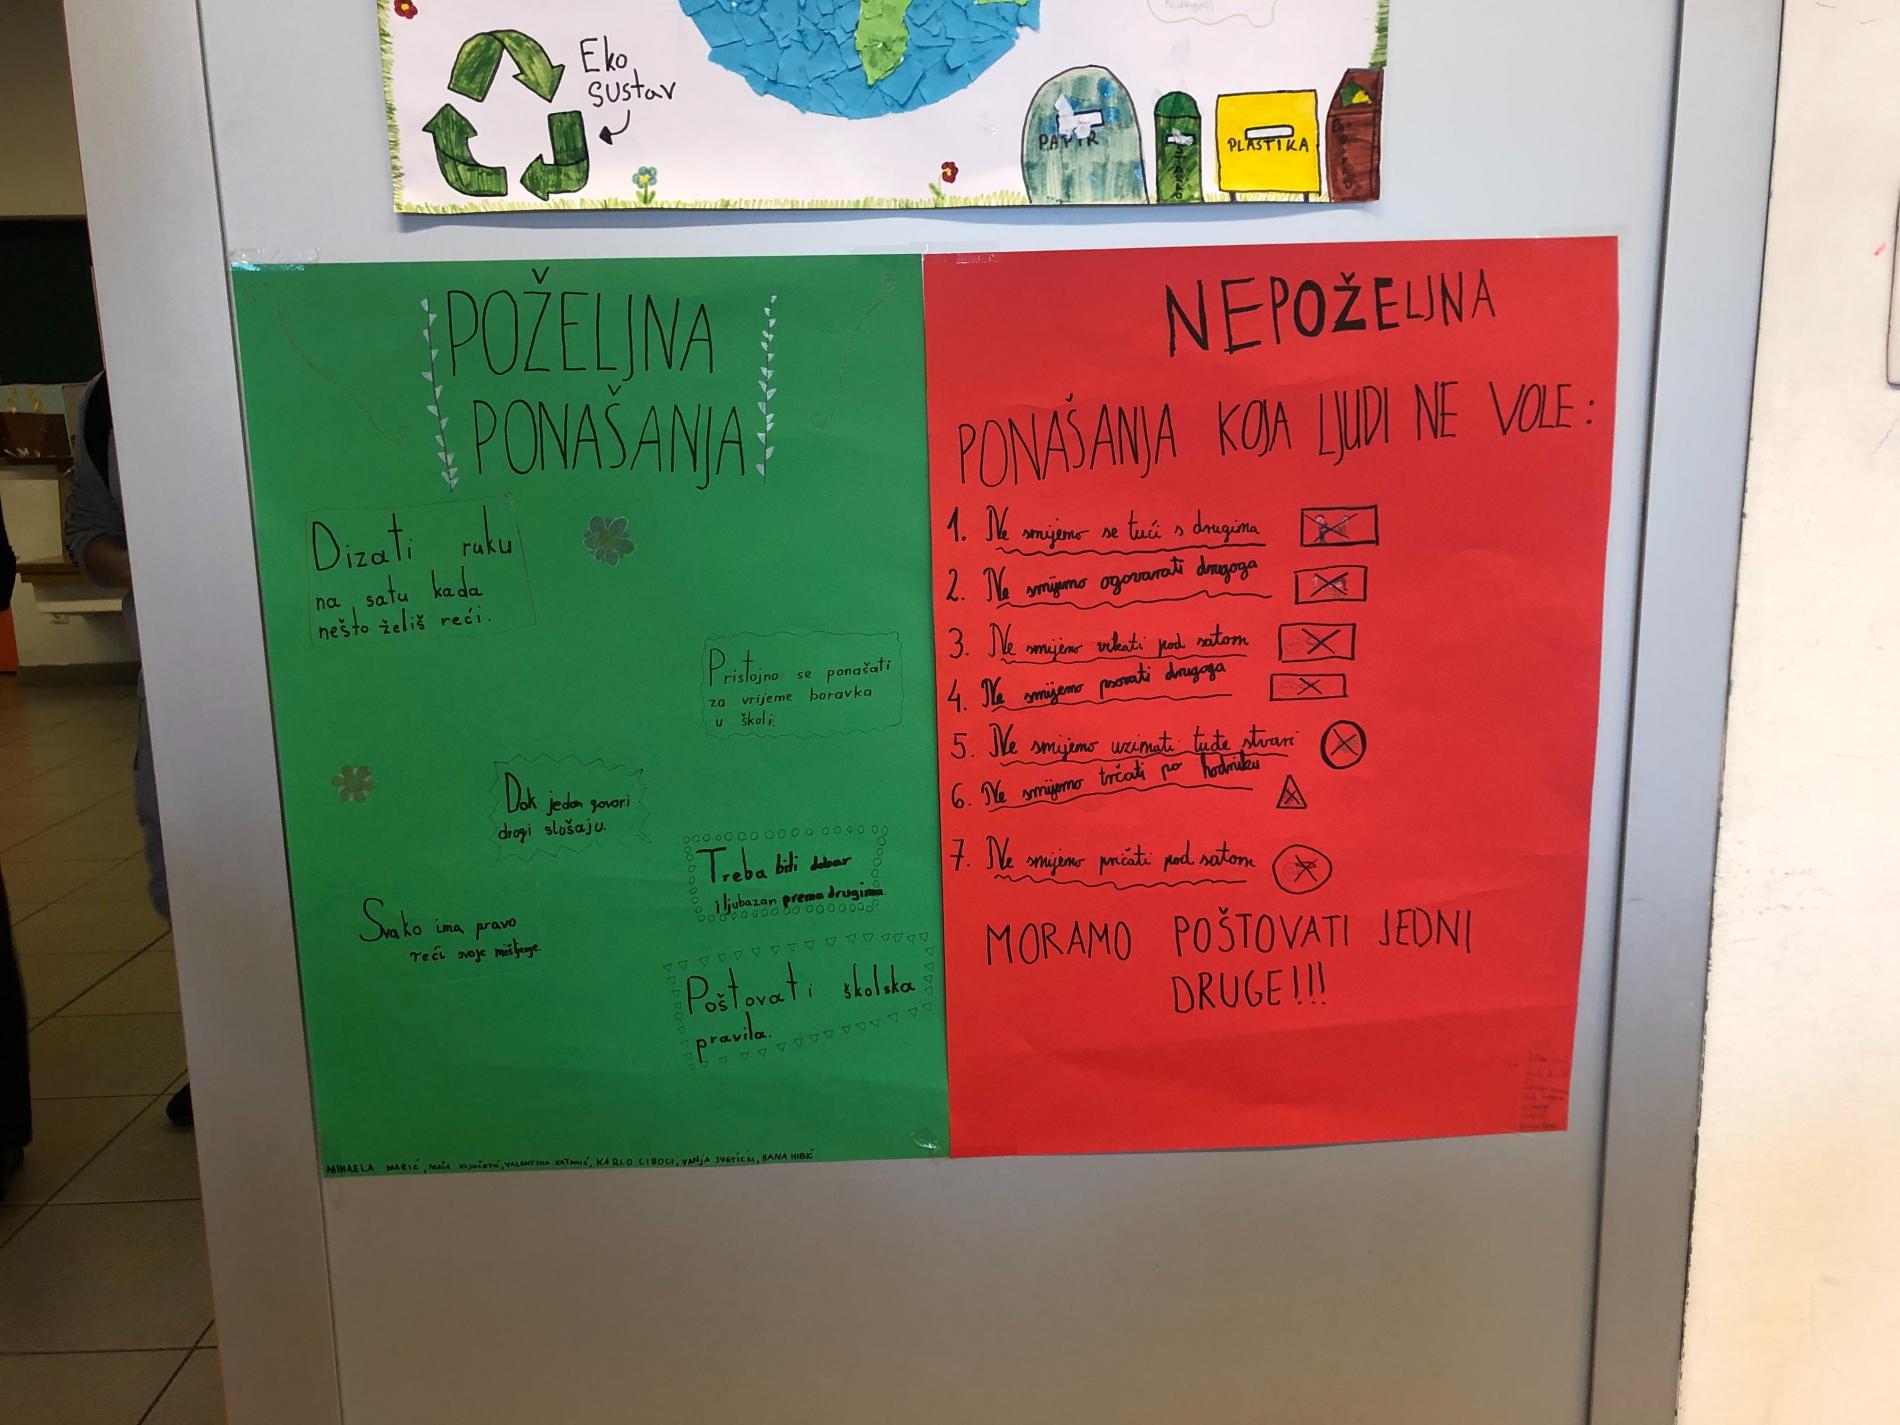 Eko
sustav
PAPIR
STAKLO
PLASTIKA
POŽELJNA
PONAŠANJA
Dizati ruku
na satu kada
nešto želiš reći.
Pristojno se ponašati
za vrijeme boravka
u školi.
Dok jedan govori
drugi slušaju.
Treba biti dobar
i ljubazan prema drugima.
Svako ima pravo
reći svoje mišljenje.
Poštovati školska
pravila.
MIHAELA MARIĆ, MAŠA, VALENTINA, KARLO CIBOCI, VANJA SVETIČKI, HANA
NEPOŽELJNA
PONAŠANJA KOJA LJUDI NE VOLE:
1. Ne smijemo se tući s drugima
2. Ne smijemo ogovarati drugoga
3. Ne smijemo vikati pod satom
4. Ne smijemo psovati drugoga
5. Ne smijemo uzimati tuđe stvari
6. Ne smijemo trčati po hodniku
7. Ne smijemo pričati pod satom
MORAMO POŠTOVATI JEDNI
DRUGE!!!